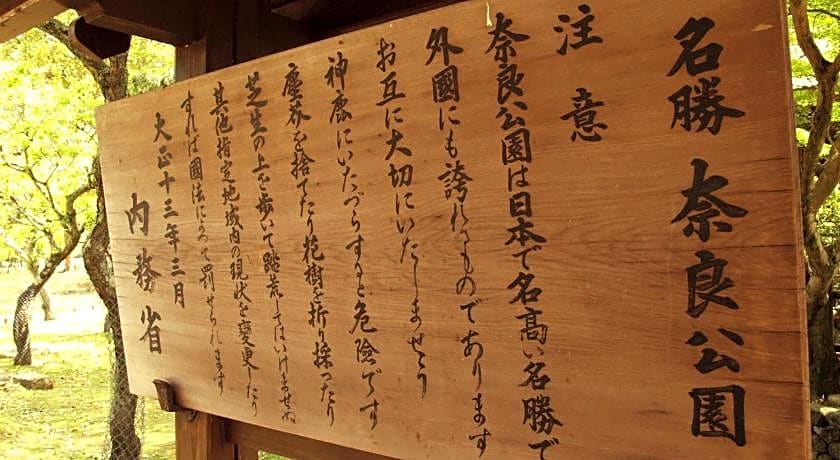 名勝 奈良公園
注意
奈良公園は日本で名高い名勝で
外國にも誇れるものであります
お互に大切にいたしませう
神鹿にいたづらすると危險です
塵芥を捨てたり花樹を折り採つたり
芝生の上を歩いて踏荒してはいけませぬ
其他指定地域内の現状を變更したり
すれば國法によつて罰せられます
大正十三年三月
内務省